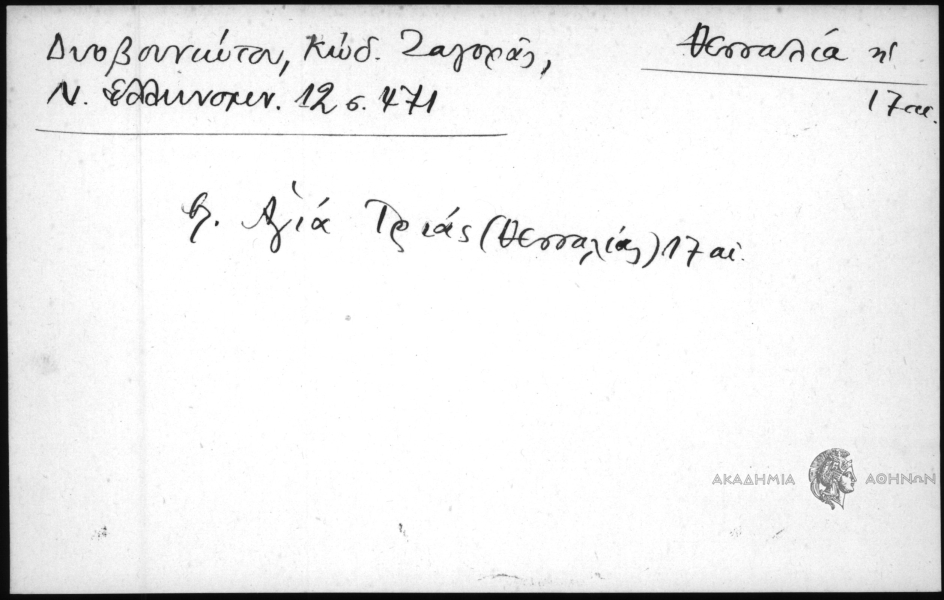 Δυοβουνιώτου, Κώδ. Ζαγορᾶς,
Ν. Ἑλληνομν. 12 σ. 471
Θεσσαλία
17 αι.
βλ. Ἁγία Τριάς (Θεσσαλίας) 17 αἰ.
ΑΚΑΔΗΜΙΑ ΑΘΗΝΩΝ